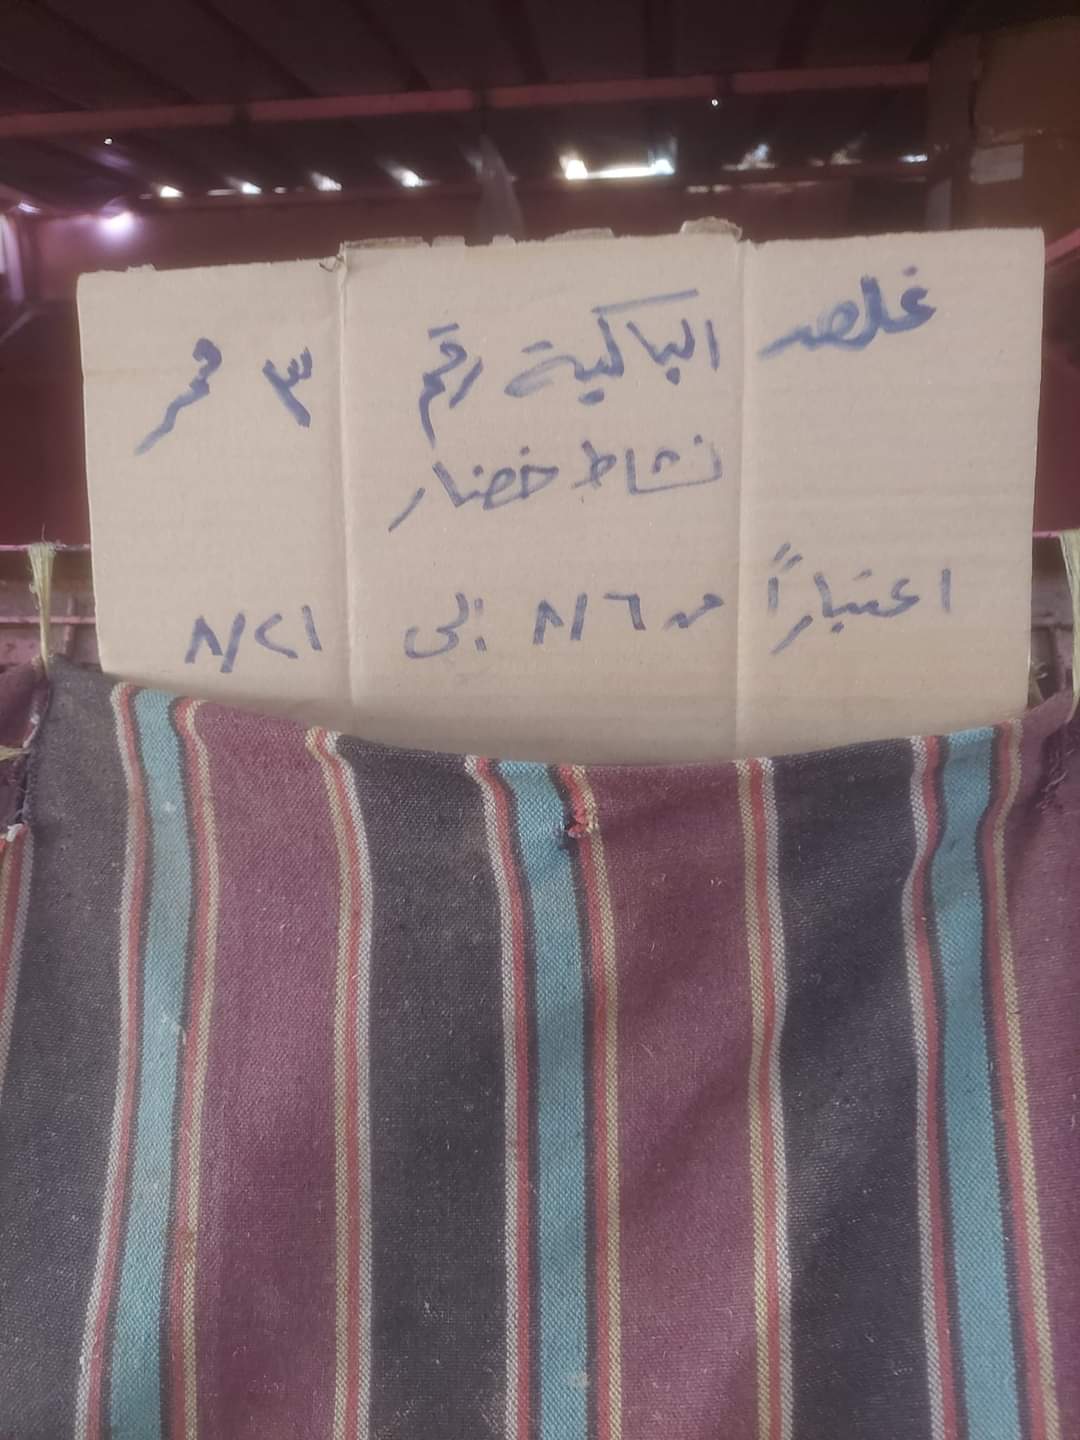 غلق الباكية رقم ٣
نشاط خضار
اعتباراً من ٨/٦ إلى ٨/٢١